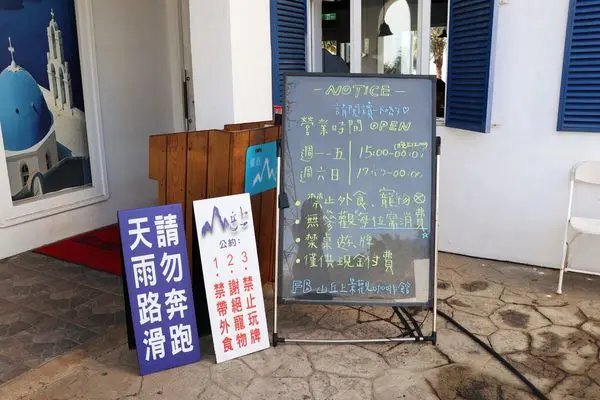 天雨路滑
請勿奔跑
山丘上
公約：
1．禁帶外食
2．謝絕寵物
3．禁止玩牌
-NOTICE-
請閱讀
營業時間 OPEN
週一-五
15:00-00:00
週六日
禁止外食、寵物
無參觀每位需消費
禁桌遊、牌
僅供現金付費
FB 山丘上景觀
館